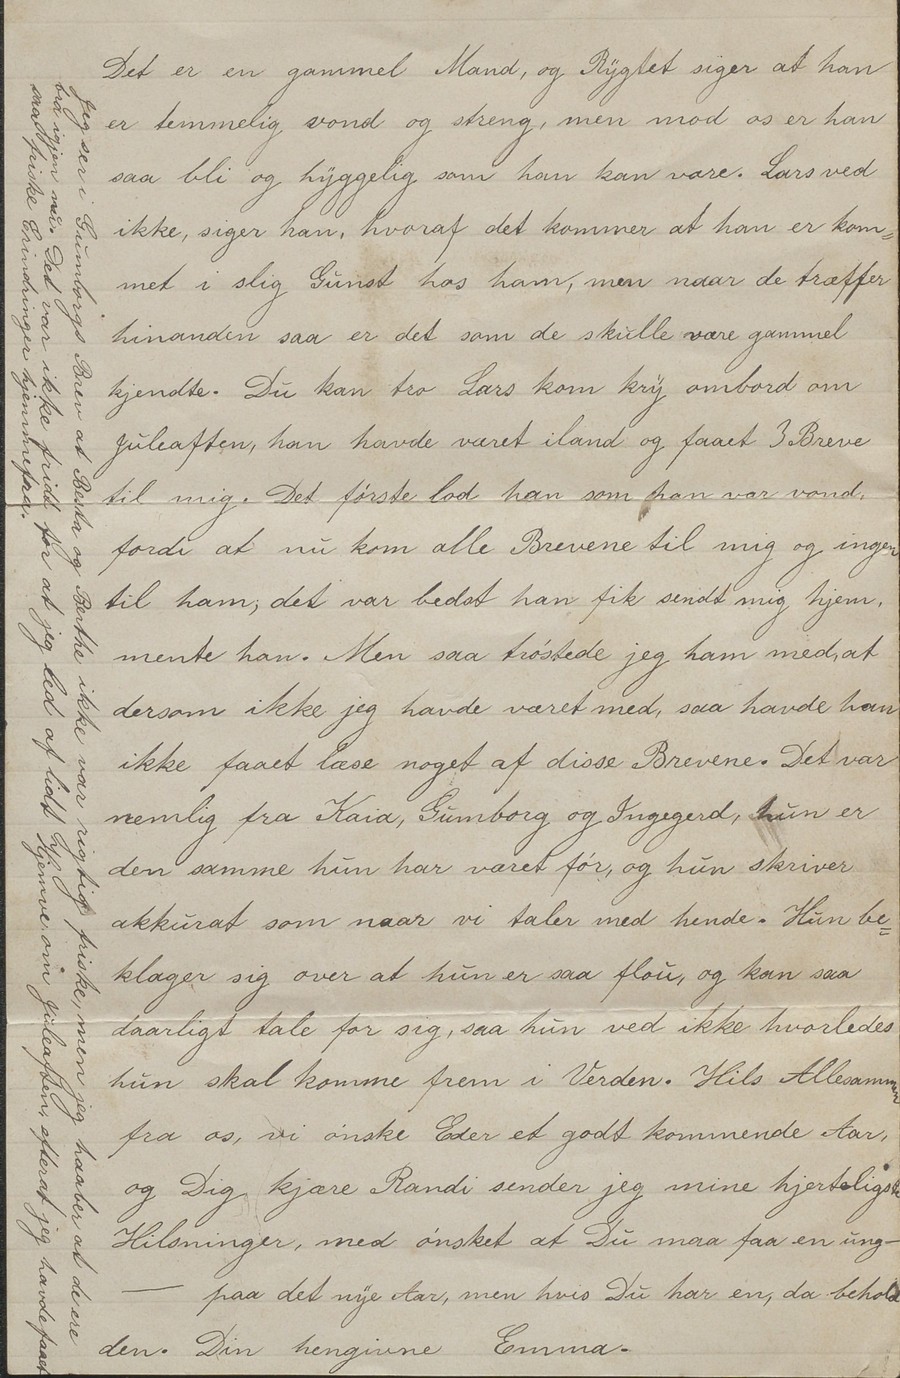 Det er en gammel Mand, og Rÿgtet siger at han
er temmelig vond og streng, men mod os er han
saa bli og hÿggelig som han kan være. Lars ved
ikke, siger han, hvoraf det kommer at han er kom=
met i slig Gunst hos ham, men naar de træffer
hinanden saa er det som de skulle være gammel
kjendte. Du kan tro Lars kom krÿ ombord om
Juleaften, han havde været iland og faaet 3 Breve
til mig. Det første lod han som han var vond,
fordi at nu kom alle Brevene til mig og ingen
til ham; det var bedst han fik sendt mig hjem,
mente han. Men saa trøstede jeg ham med, at
dersom ikke jeg havde været med, saa havde han
ikke faaet læse noget af disse Brevene. Det var
nemlig fra Kaia, Gumborg og Ingegerd, hun er
den samme hun har været før, og hun skriver
akkurat som naar vi taler med hende. Hun be=
klager sig over at hun er saa flou, og kan saa
daarligt tale for sig, saa hun ved ikke hvorledes
hun skal komme frem i Verden. Hils Allesammen
fra os, vi ønske Eder et godt kommende Aar,
og Dig kjære Randi sender jeg mine hjerteligste
Hilsninger, med ønsket at Du maa faa en ung—
— paa det nÿe Aar, men hvis Du har en, da behold
den. Din hengivne Emma.
Jeg ser i Gumborgs Brev at Besta og Berthe ikke var rigtig friske, men jeg haaber at de ere
bra igjen nu. Det var ikke fridt for at jeg led af lidt Hjemve om Juleaften, efterat jeg havde faaet
saa friske Erindringer hjemmefra.